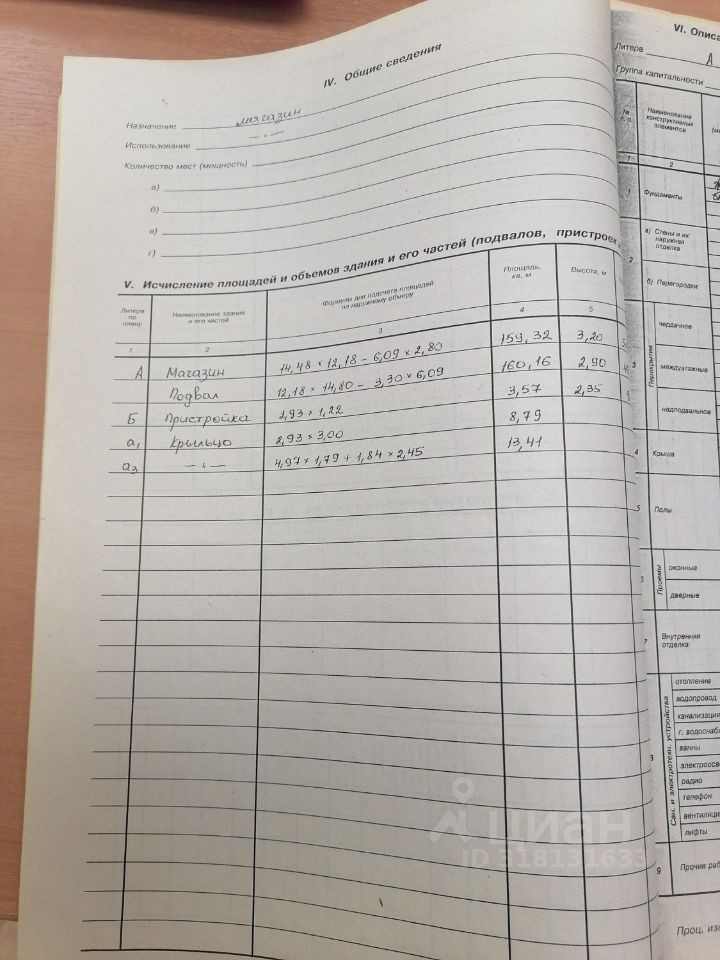 IV. Общие сведения
Назначение магазин
Использование — „ —
Количество мест (мощность)
а)
б)
в)
г)
V. Исчисление площадей и объемов здания и его частей (подвалов, пристроек
Литера по плану Наименование здания и его частей Формулы для подсчета площадей по наружному обмеру Площадь, кв. м Высота, м
1 2 3 4 5
А Магазин 14,48 × 12,18 – 6,09 × 2,80 159,32 3,20
Подвал 12,18 × 14,80 – 3,30 × 6,09 160,16 2,90
Б Пристройка 2,93 × 1,22 3,57 2,35
а₁ Крыльцо 2,93 × 3,00 8,79
а₃ — „ — 4,97 × 1,79 + 1,84 × 2,45 13,41
VI. Описа
Литера А
Группа капитальности
№ п. п. Наименование конструктивных элементов
1 2
1 Фундаменты
2 а) Стены и их наружная отделка
б) Перегородки
3 Перекрытия чердачное
междуэтажные
надподвальное
4 Крыша
5 Полы
6 Проемы оконные
дверные
7 Внутренняя отделка
8 Сан. и электротехн. устройства отопление
водопровод
канализация
г. водоснабж
ванны
электроосв
радио
телефон
вентиляци
лифты
9 Прочие раб
Проц. из
циан
ID 318131633